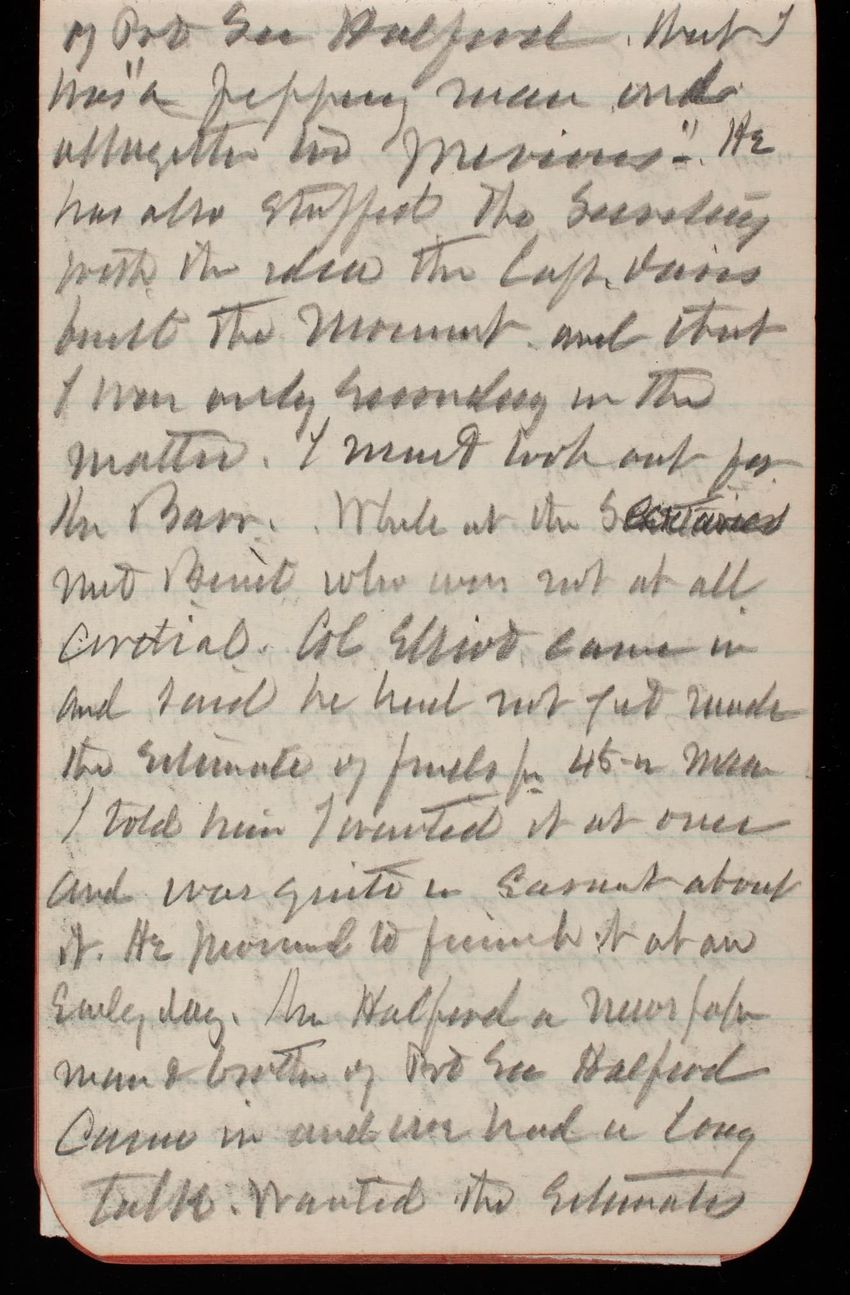 of Pvt Sec Halford. that I
was "a peppery man and
altogether too previous". He
has also stuffed the Secretary
with the idea the Capt. Davis
built the Monument and that
I was only Secondary in the
matter. I must look out for
the Barr. While at the Secretaries
met Benet who was not at all
Cordial. Col Elliot came in
and said he had not yet made
the Estimate of funds for
I told him I wanted it at once
and was quite in Earnest about
it. He promised to furnish it at an
Early day. Mr Halford a news paper
man & brother of Pvt Sec Halford
Came in and we had a long
talk. Wanted the Estimates